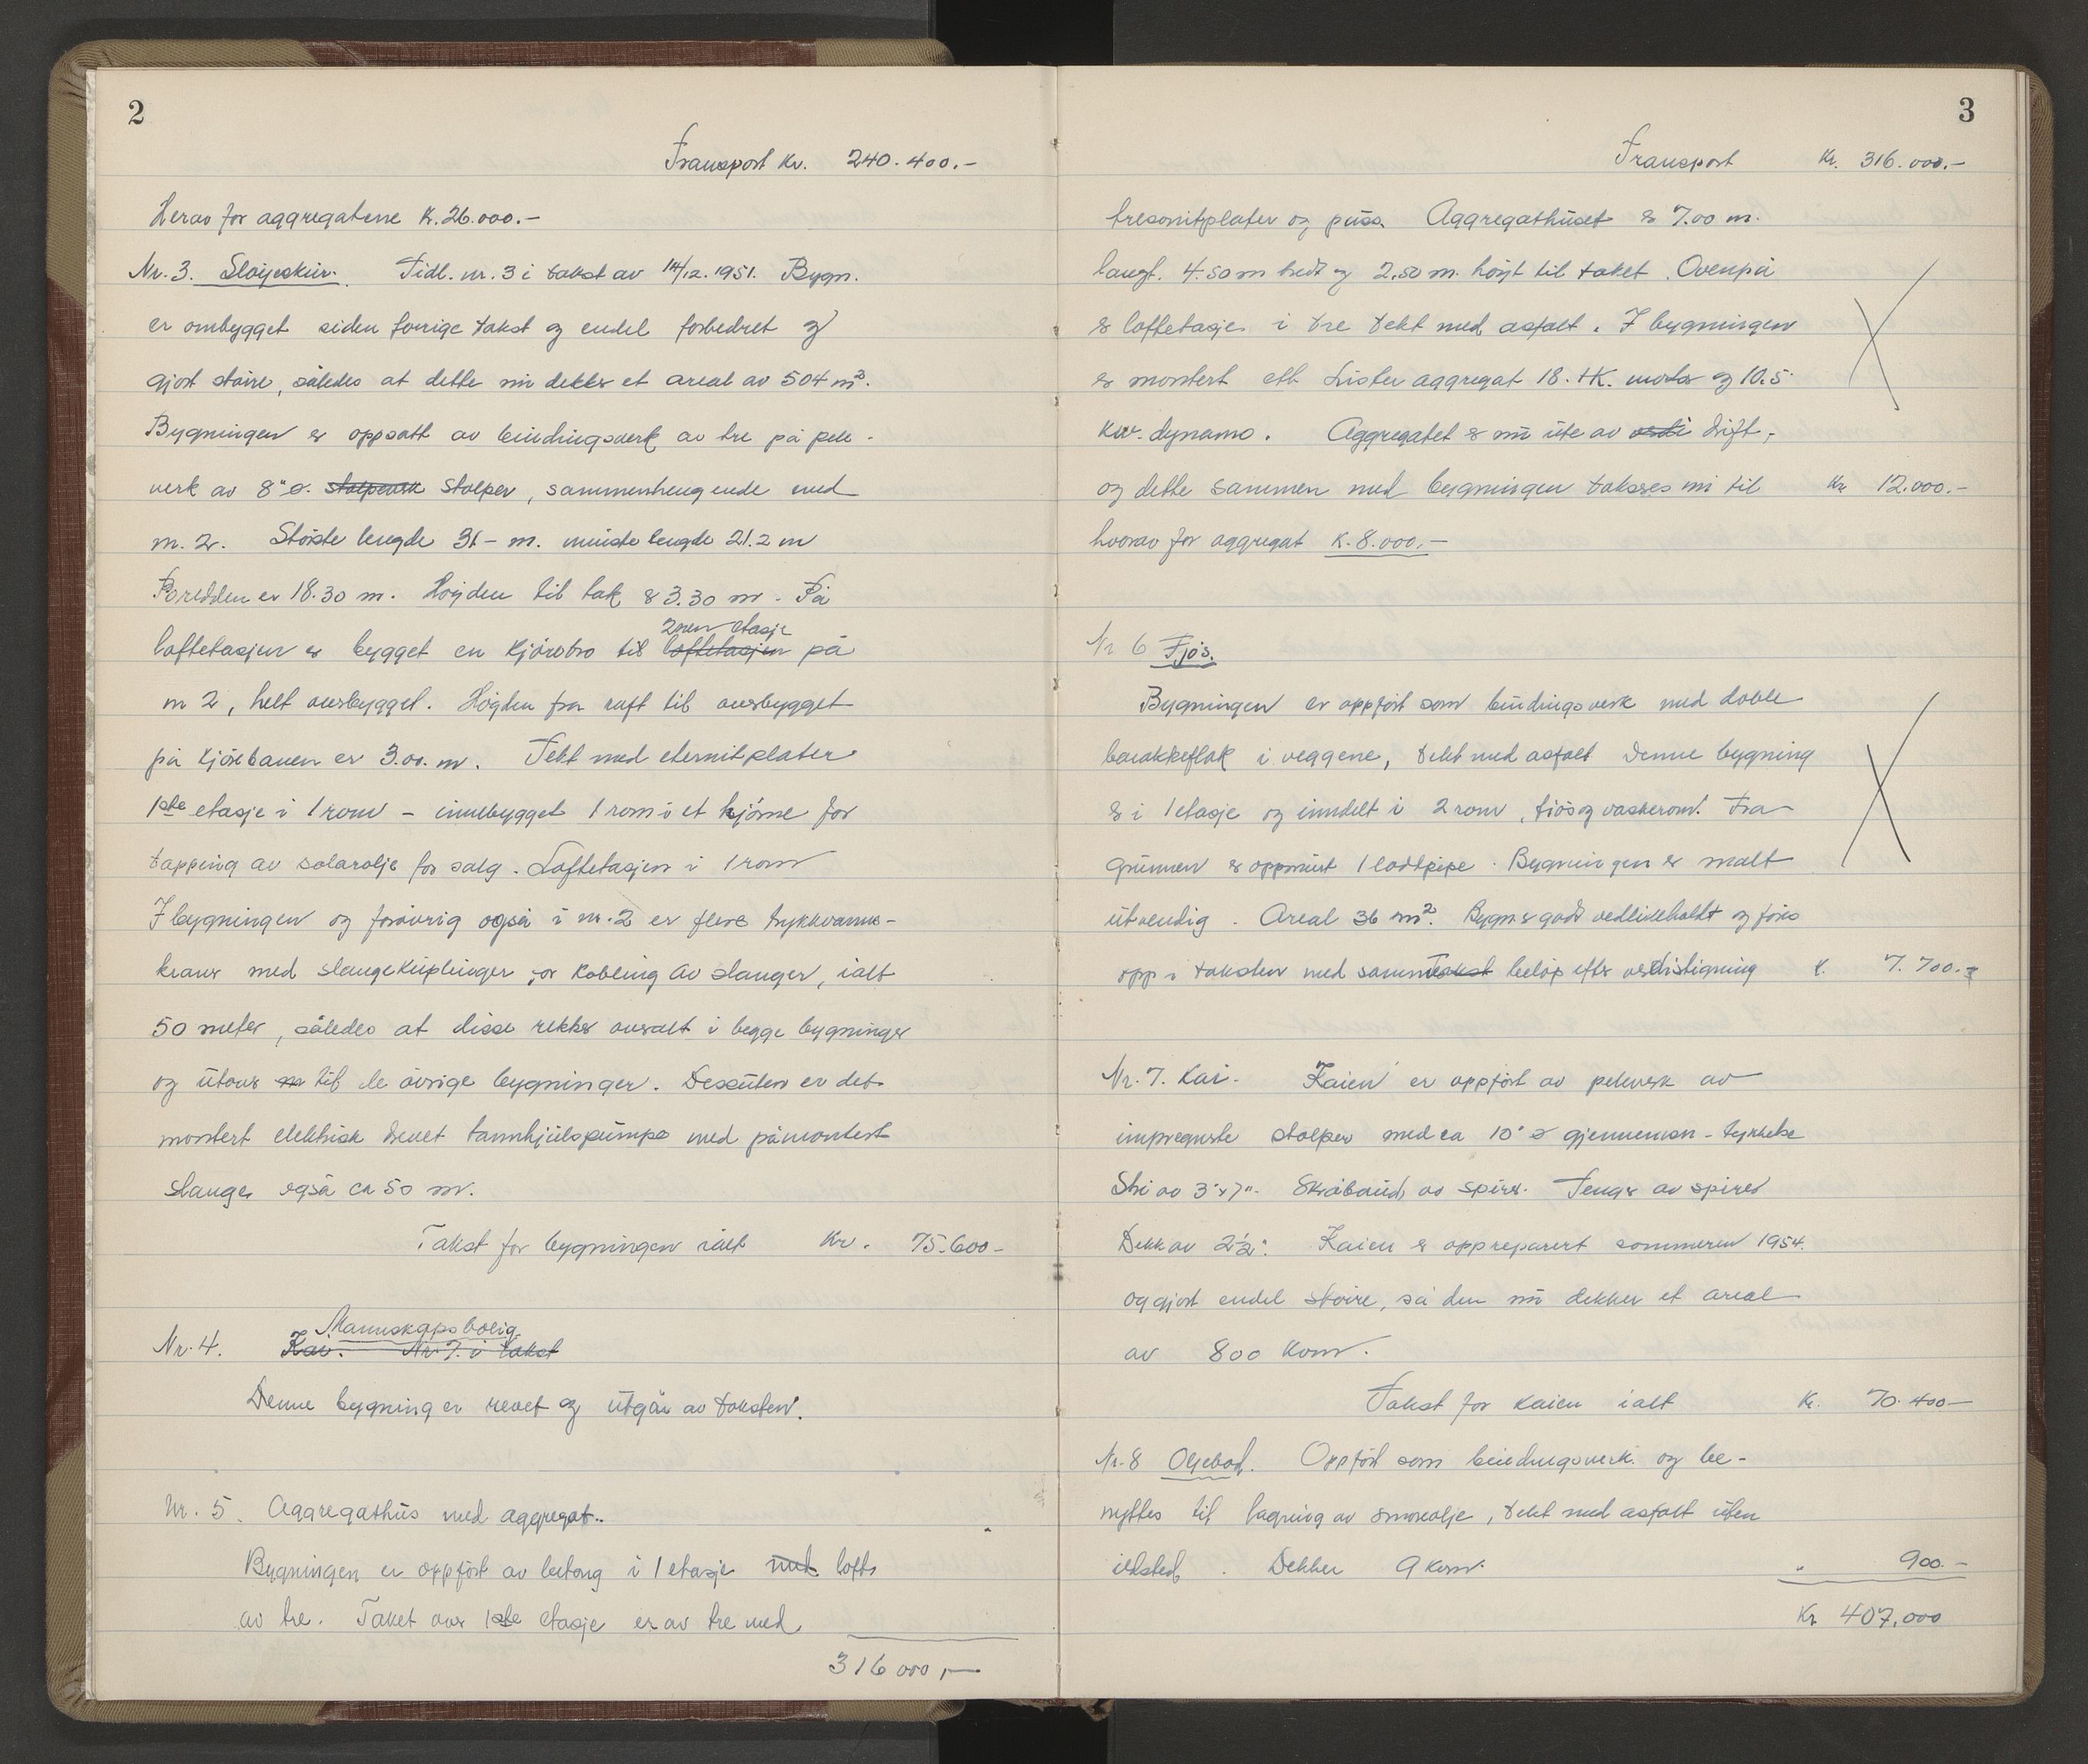 2
Transport Kr. 240.400.-
Herav for aggregatene K. 26.000.-
Nr. 3. Sløyeskur. Tidl. nr. 3 i takst av 14/12.1951. Bygn.
er ombygget siden forrige takst og endel forbedret og
gjort større, således at dette nu dekker et areal av 504 m².
Bygningen er oppsatt av bindingsverk av tre på pele-
verk av 8" ø. stolpeverk stolper, sammenhengende med
nr. 2. Største lengde 31- m. minste lengde 21.2 m
Bredden er 18.30 m. Høyden til tak er 3.30 m. På
2nen etasje
loftetasjen er bygget en kjørebro til loftetasjen på
nr 2, helt overbygget. Høyden fra raft til overbygget
på kjørebanen er 3.00. m. Tekt med eternitplater
1ste etasje i 1 rom - innebygget 1 rom i et hjørne for
tapping av solarolje for salg. Loftetasjen i 1 rom
I bygningen og forøvrig også i nr. 2 er flere trykkvanns-
kraner med slangekuplinger for kobling av slanger, ialt
50 meter, således at disse rekker overalt i begge bygninger
og utover til de øvrige bygninger. Dessuten er det
montert elektrisk drevet tannhjulspumpe med påmontert
slange også ca 50 m.
Takst for bygningen ialt Kr. 75.600-
Mannskapsbolig
Nr. 4. Kai. Nr. 7. i takst
Denne bygning er revet og utgår av taksten.
Nr. 5. Aggregathus med aggregat..
Bygningen er oppført av betong i 1 etasje med lofts
av tre. Taket over 1ste etasje er av tre med
316 000,-
3
Transport Kr. 316.000.-
tresonitplater og puss. Aggregathuset er 7.00 m.
langt. 4.50 m bredt og 2.50 m. høyt til taket. Ovenpå
er loftetasje i tre tekt med asfalt. I bygningen
er montert ett Lister aggregat 18. HK. motor og 10.5
kw. dynamo. Aggregatet er nu ute av drift,
og dette sammen med bygningen takseres nu til Kr 12.000.-
hvorav for aggregat K. 8.000.-
Nr 6 Fjøs.
Bygningen er oppført som bindingsverk med doble
barakkeflak i veggene, tekt med asfalt Denne bygning
er i 1 etasje og inndelt i 2 rom, fjøs og vaskerom. Fra
grunnen er oppmurt 1 lodtpipe. Bygningen er malt
utvendig. Areal 36 m². Bygn er godt vedlikeholdt og føres
opp i taksten med samme takst beløp efter verdistigning K. 7.700.-
Nr. 7. Kai. Kaien er oppført av peleverk av
impregnerte stolper med ca 10" ø gjennemsn-tykkelse
Stri av 3"x7". Skråbånd av spirer. Tenger av spirer
Dekk av 2½". Kaien er oppreparert sommeren 1954.
og gjort endel større, så den nu dekker et areal
av 800 kvm.
Takst for kaien ialt Kr. 70.400-
Nr. 8 Oljebod. Oppført som bindingsverk og be-
nyttes til lagring av smøreolje, tekt med asfalt uten
ildsted. Dekker 9 kvm. " 900.-
Kr 407,000